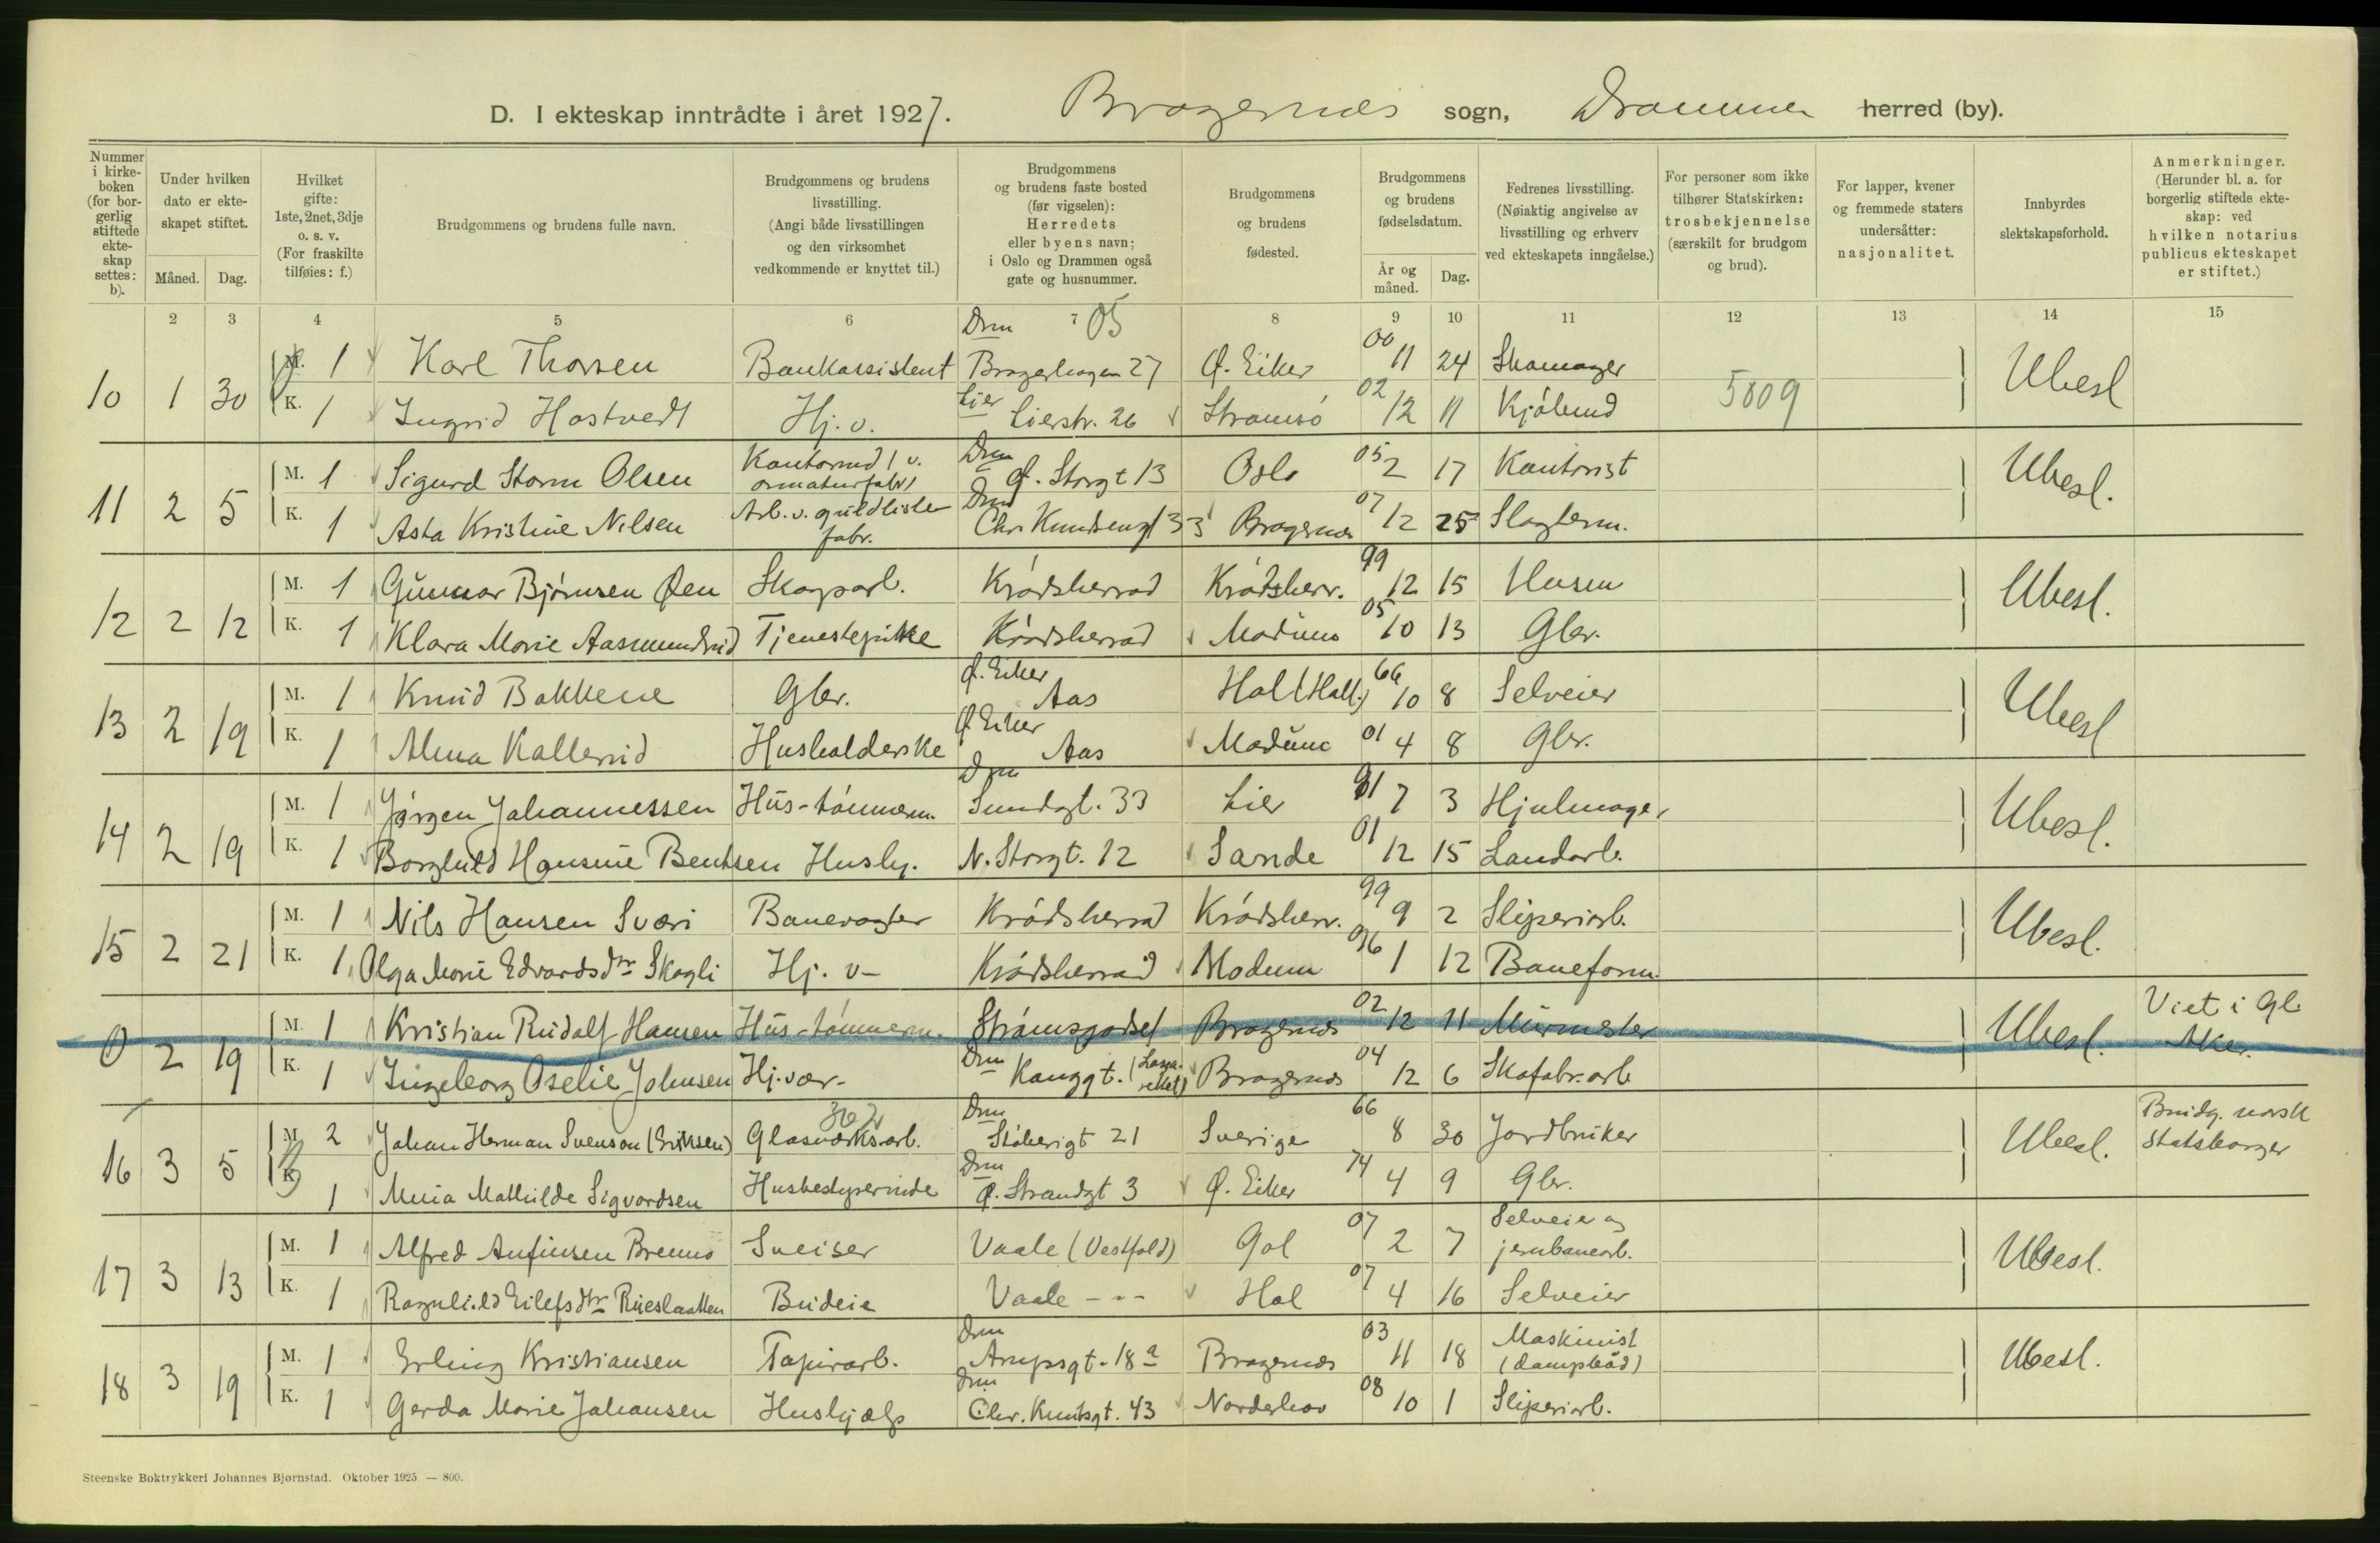 D. I ekteskap inntrådte i året 1927. Bragernes sogn, Drammen herred (by).
Nummer i kirkeboken (for borgerlig stiftede ekteskap settes: b).
Under hvilken dato er ekteskapet stiftet.
Måned. Dag.
Hvilket gifte: 1ste, 2net, 3dje o. s. v. (For fraskilte tilføies: f.)
Brudgommens og brudens fulle navn.
Brudgommens og brudens livsstilling. (Angi både livsstillingen og den virksomhet vedkommende er knyttet til.)
Brudgommens og brudens faste bosted (før vigselen): Herredets eller byens navn; i Oslo og Drammen også gate og husnummer.
Brudgommens og brudens fødested.
Brudgommens og brudens fødselsdatum.
År og måned. Dag.
Fedrenes livsstilling. (Nøiaktig angivelse av livsstilling og erhverv ved ekteskapets inngåelse.)
For personer som ikke tilhører Statskirken: trosbekjennelse (særskilt for brudgom og brud).
For lapper, kvener og fremmede staters undersåtter: nasjonalitet.
Innbyrdes slektskapsforhold.
Anmerkninger. (Herunder bl. a. for borgerlig stiftede ekteskap: ved hvilken notarius publicus ekteskapet er stiftet.)
2 3 4 5 6 7 8 9 10 11 12 13 14 15
05
10 1 30 M. 1 Karl Thorsen Bankassistent Drm Bragerhagen 27 Ø. Eiker 00 11 24 Skomager Ubesl
K. 1 Ingrid Hostvedt Hj. v. Lier Lierstr. 26 Strømsø 02 12 11 Kjøbmd 5809
11 2 5 M. 1 Sigurd Storm Olsen Kontormd v. armaturfabr. Drm Ø. Storgt 13 Oslo 05 2 17 Kontorist Ubesl.
K. 1 Asta Kristine Nilsen Arb. v. guldliste fabr. Drm Chr. Knudsengt 33 Bragernes 07 12 25 Slagterm.
12 2 12 M. 1 Gunnar Bjørnsen Øen Skogsarb. Krødsherrad Krødsherr. 99 12 15 Husm Ubesl.
K. 1 Klara Marie Aasmundrud Tjenestepike Krødsherrad Modum 05 10 13 Gbr.
13 2 19 M. 1 Knud Bakkene Gbr. Ø. Eiker Aas Hol (Hall.) 66 10 8 Selveier Ubesl
K. 1 Alma Kallerud Husholderske Ø. Eiker Aas Modum 01 4 8 Gbr.
14 2 19 M. 1 Jørgen Johannessen Hus-tømmerm. Drm Sundgt. 33 Lier 91 7 3 Hjulmager Ubesl.
K. 1 Borghild Hansine Bentsen Husby. N. Storgt. 12 Sande 01 12 15 Landarb.
15 2 21 M. 1 Nils Hansen Sværi Banevogter Krødsherrad Krødsherr. 99 9 2 Sliperiarb. Ubesl.
K. 1 Olga Marie Edvardsdtr Skogli Hj. v- Krødsherrad Modum 96 1 12 Baneform.
0 2 19 M. 1 Kristian Rudolf Hansen Hus-tømmerm. Strømsgodset Bragernes 02 12 11 Murmester Ubesl. Viet i Gl. Aker.
K. 1 Ingeborg Oselie Johnsen Hj. vær- Drm Konggt. Bragernes 04 12 6 Skofabr.arb
16 3 5 M. 2 Johan Herman Svenson (Eriksen) Glasværksarb. Drm Støberigt 21 Sverige 66 8 30 Jordbruker Ubesl. Brudg. norsk statsborger
K. 1 Mina Mathilde Sigvardsen Husbestyrerinde Drm Ø. Strandgt 3 Ø. Eiker 74 4 9 Gbr.
17 3 13 M. 1 Alfred Anfinsen Bremno Sveiser Vaale (Vestfold) Gol 07 2 7 Selveier og jernbanearb. Ubesl.
K. 1 Ragnhild Eilefsdtr Rueslaatten Budeie Vaale -"- Hol 07 4 16 Selveier
18 3 19 M. 1 Erling Kristiansen Papirarb. Drm Arupsgt. 18a Bragernes 03 11 18 Maskinist (dampbåd) Ubesl.
K. 1 Gerda Marie Johansen Hushjælp Drm Chr. Knutsgt. 43 Norderhov 08 10 1 Sliperiarb.
Steenske Boktrykkeri Johannes Bjørnstad. Oktober 1925 — 800.